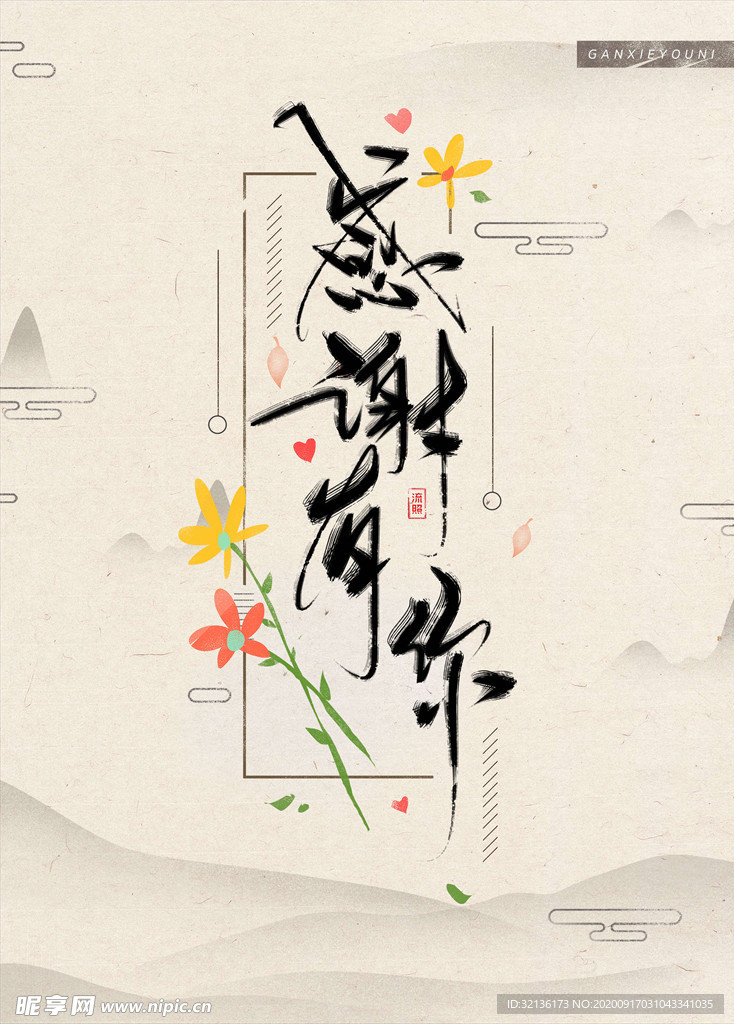 GANXIEYOUNI
感谢有你
流照
昵享网 www.nipic.cn
ID:32136173 NO:20200917031043341035